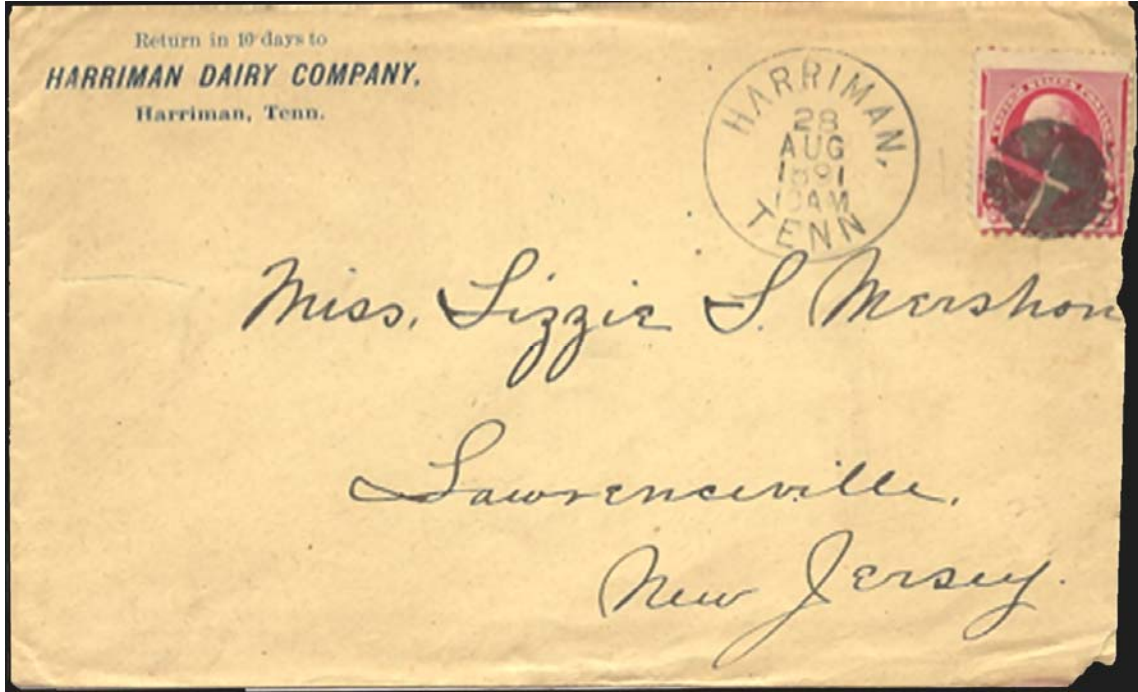 Return in 10 days to
HARRIMAN DAIRY COMPANY,
Harriman, Tenn.
HARRIMAN,
28
AUG
1891
10AM
TENN
Miss. Lizzie S. Mershon
Lawrenceville,
New Jersey.